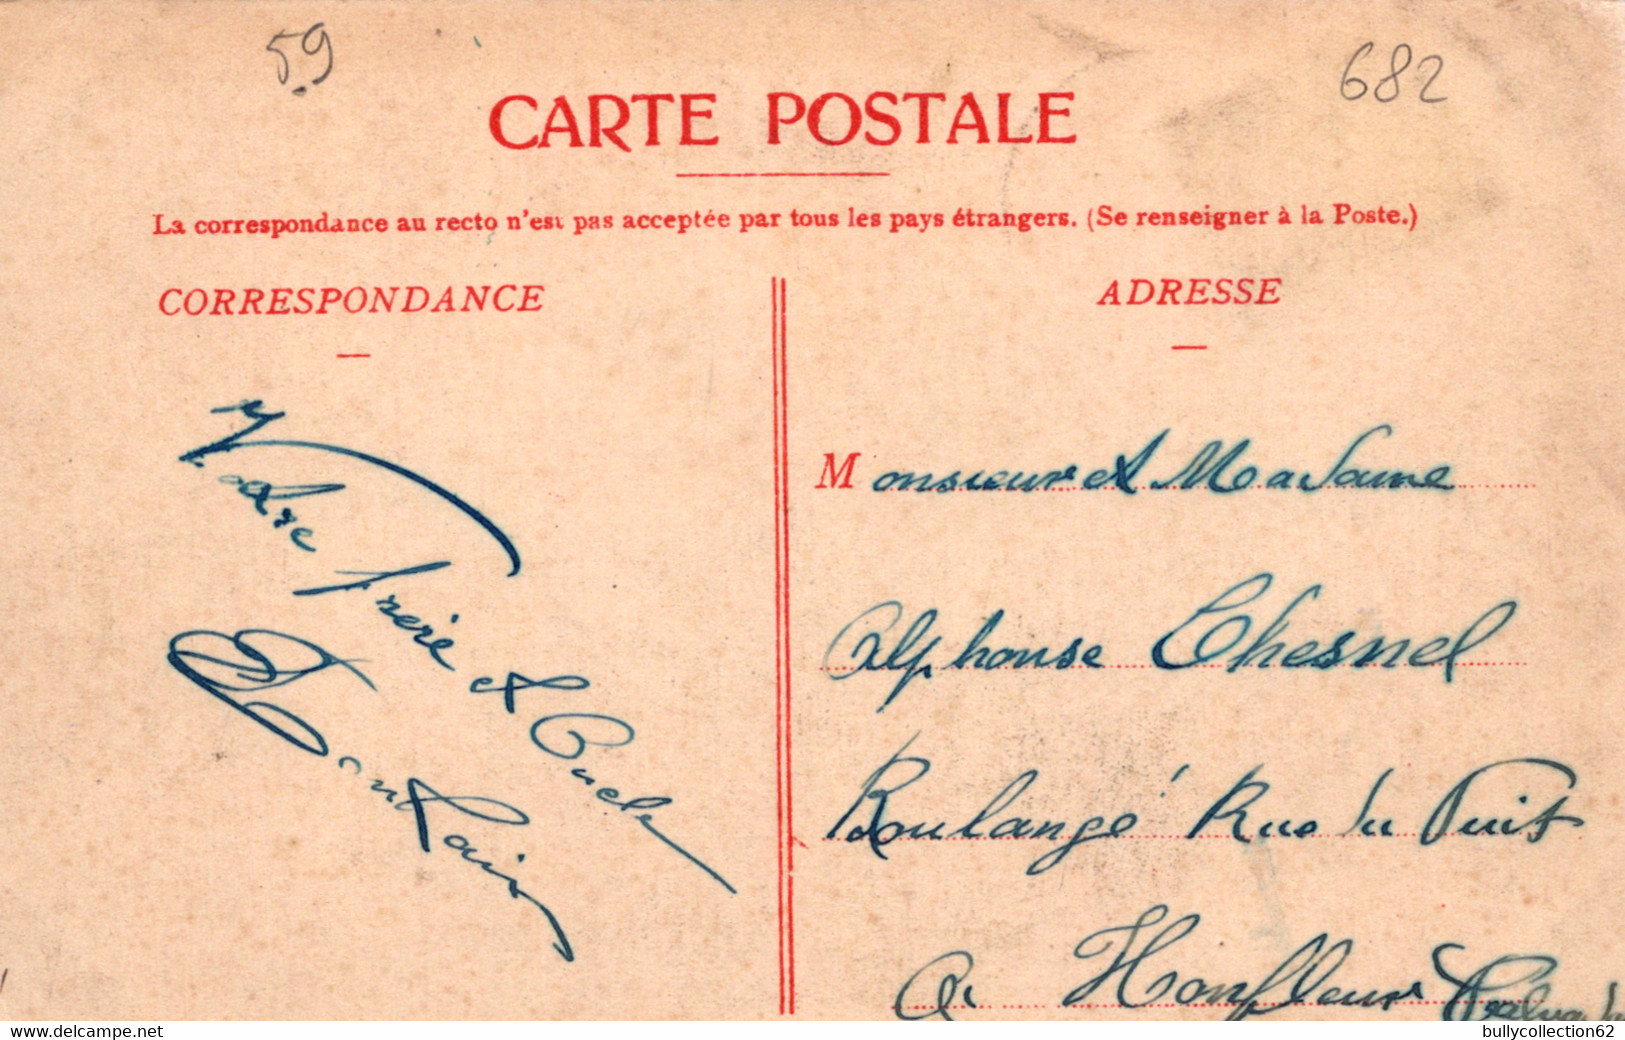 59
682
CARTE POSTALE
La correspondance au recto n'est pas acceptée par tous les pays étrangers. (Se renseigner à la Poste.)
CORRESPONDANCE
ADRESSE
Votre frère et
Monsieur et Madame
Alphonse Chesnel
Boulangé Rue du Puit
a Honfleur Calvados
https://www.delcampe.net
bullycollection62